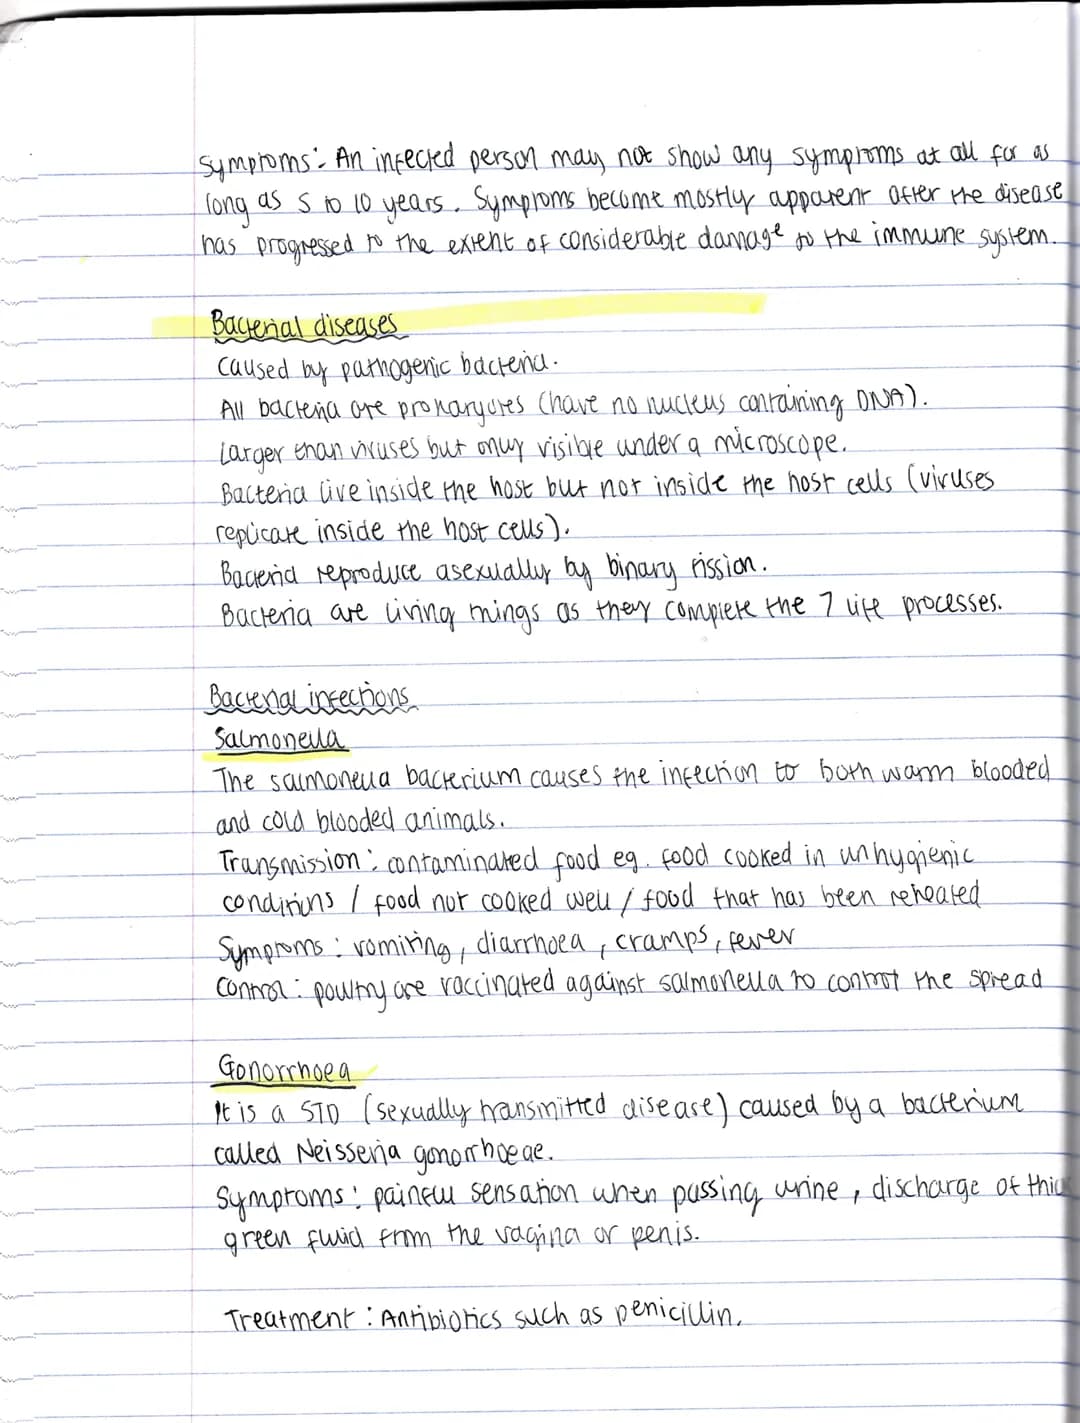 Symptoms: An infected person may not show any symptoms at all for as
long as 5 to 10 years. Symptoms become mostly apparent after the disease
has progressed to the extent of considerable damage to the immune system.
Bacterial diseases
Caused by pathogenic bacteria.
All bacteria are prokaryotes (have no nucleus containing DNA).
Larger than viruses but only visible under a microscope.
Bacteria live inside the host but not inside the host cells (viruses
replicate inside the host cells).
Bacteria reproduce asexually by binary fission.
Bacteria are living things as they complete the 7 life processes.
Bacterial infections
Salmonella
The salmonella bacterium causes the infection to both warm blooded
and cold blooded animals.
Transmission: contaminated food eg. food cooked in unhygienic
conditions / food not cooked well / food that has been reheated
Symptoms: vomiting, diarrhoea, cramps, fever
Control: poultry are vaccinated against salmonella to control the spread
Gonorrhoea
It is a STD (sexually transmitted disease) caused by a bacterium
called Neisseria gonorrhoeae.
Symptoms: painful sensation when passing urine, discharge of thick
green fluid from the vagina or penis.
Treatment: Antibiotics such as penicillin.